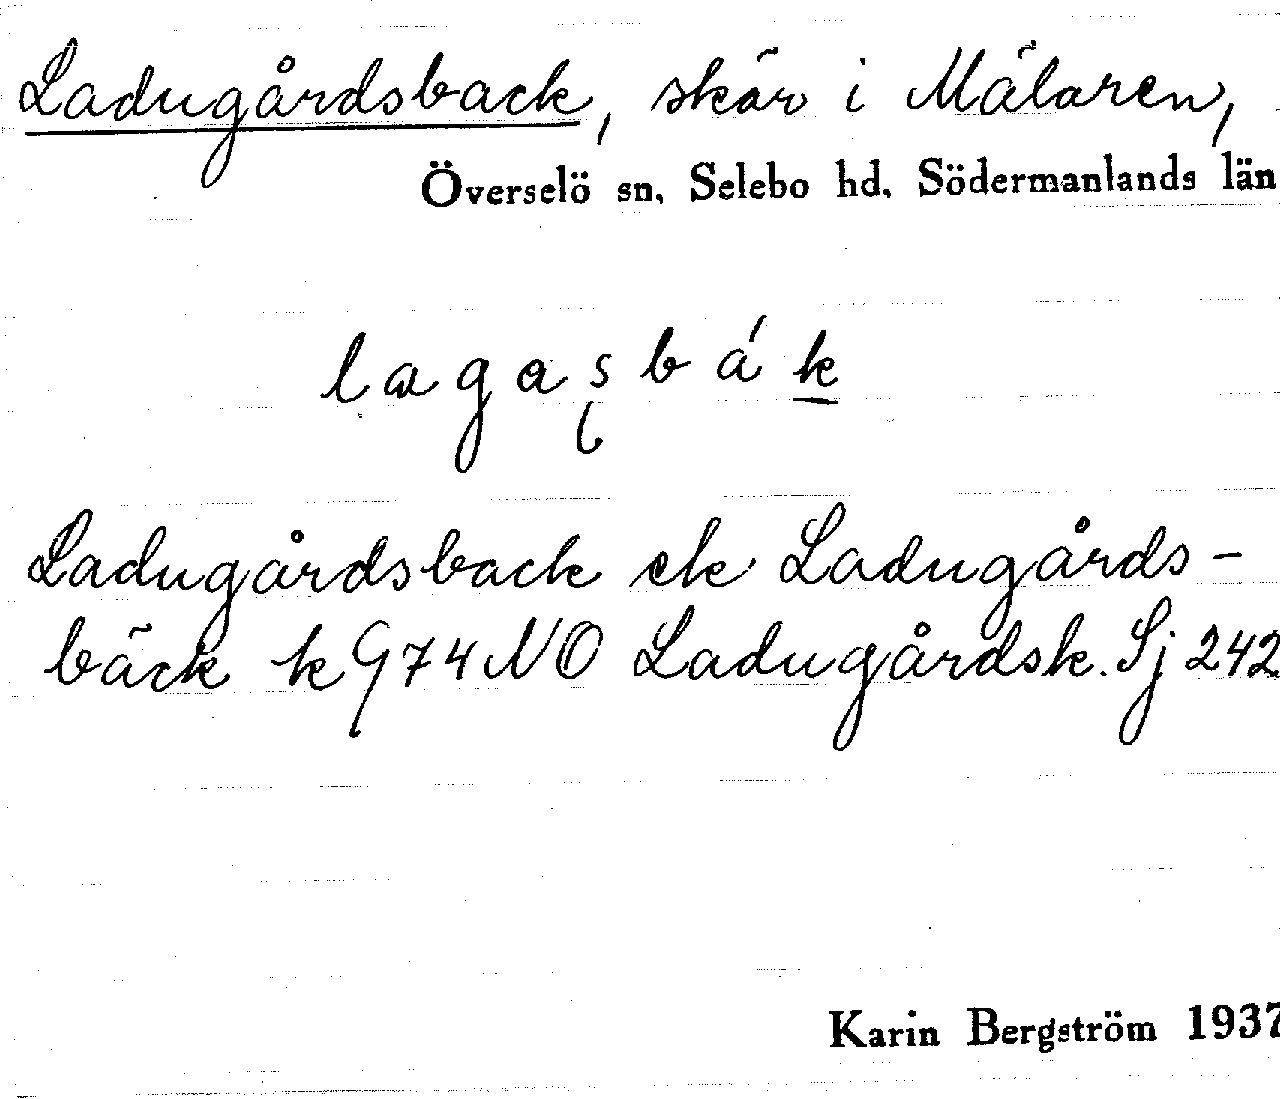 Ladugårdsback, skär i Mälaren,
Överselö sn, Selebo hd, Södermanlands län
lagasbák
Ladugårdsback ek Ladugårds-
bäck k G74NO Ladugårdsk. Sj 242
Karin Bergström 1937